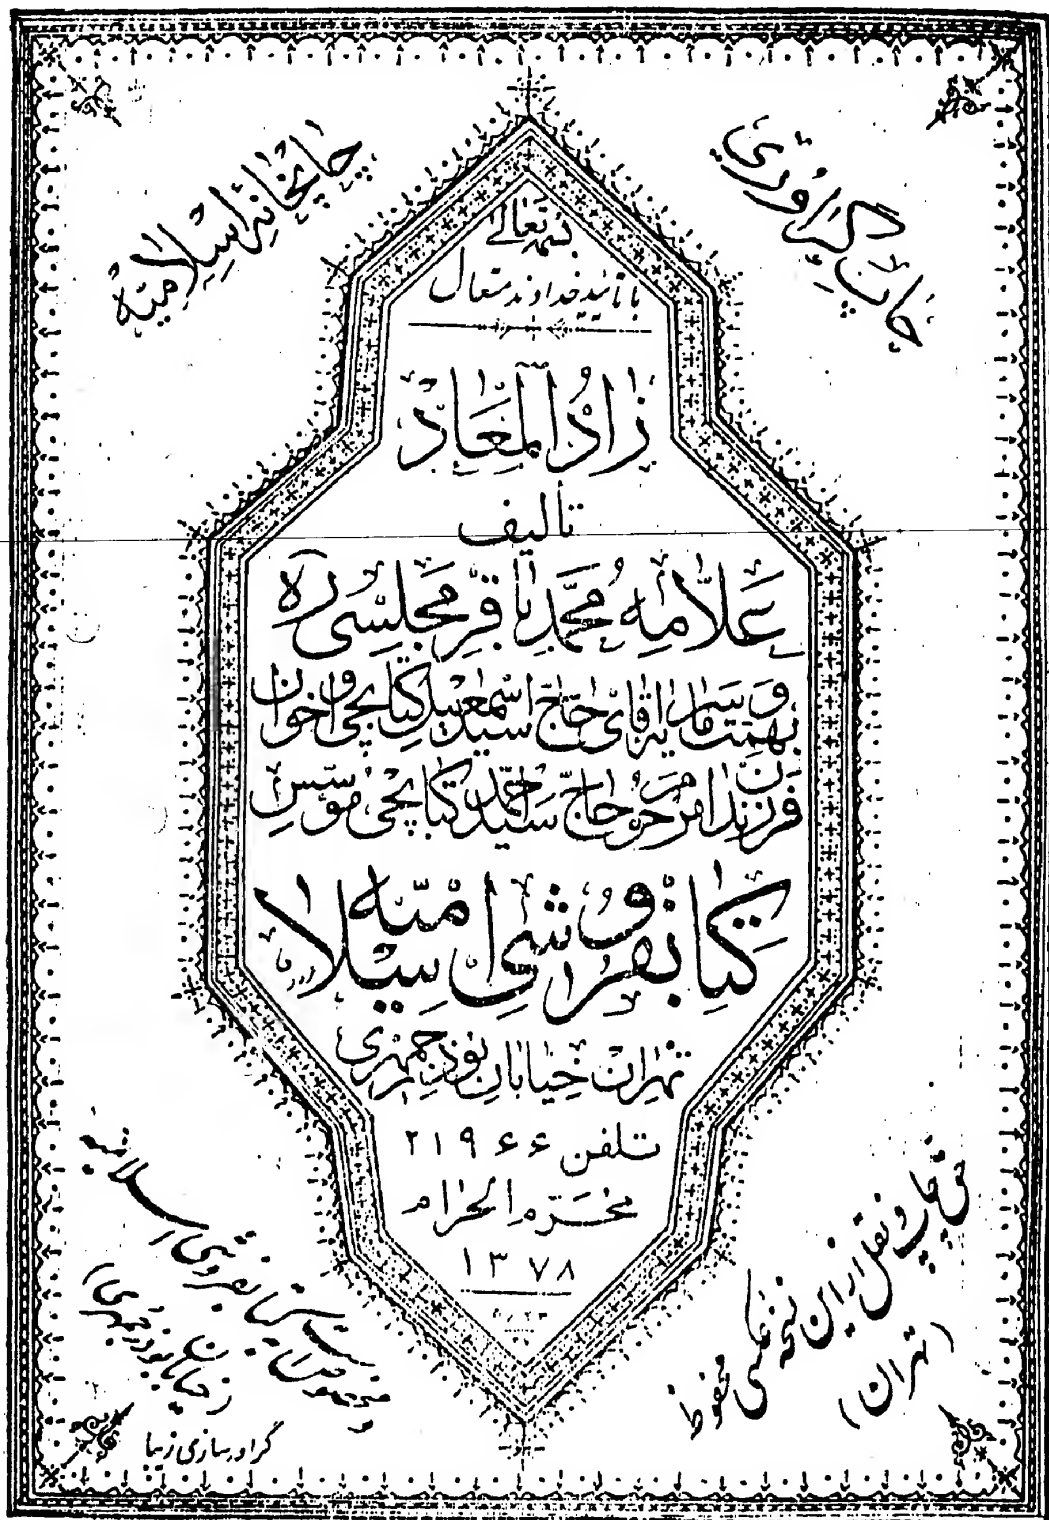 چاپ گراوری
چاپخانه اسلامیه
بسمه تعالی
با تائید خداوند متعال
زادُ المَعاد
تألیف
علّامه محمّد باقر مجلسی ره
بهمّت و سرمایه آقای حاج سیّد اسمعیل کتابچی و اخوان
فرزندان مرحوم حاجّ سیّد احمد کتابچی مؤسّس
کتابفروشی اسلامیّه
تهران خیابان بوذرجمهری
تلفن ۲۱۹۶۶
محرّم الحرام
۱۳۷۸
حق چاپ و نقل از این نسخه عکسی محفوظ
و مخصوص است بکتابفروشی اسلامیه
(تهران)
(خیابان بوذرجمهری)
گراورسازی زیبا